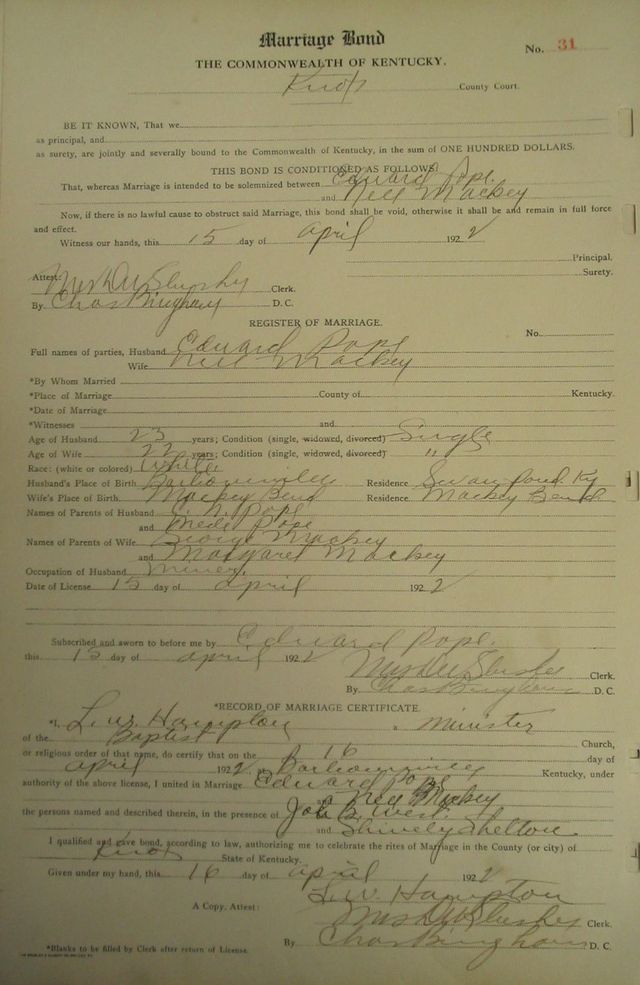 Marriage Bond
No. 31
THE COMMONWEALTH OF KENTUCKY.
Knox County Court.
BE IT KNOWN, That we
as principal, and
as surety, are jointly and severally bound to the Commonwealth of Kentucky, in the sum of ONE HUNDRED DOLLARS.
THIS BOND IS CONDITIONED AS FOLLOWS:
That, whereas Marriage is intended to be solemnized between Edward Pope.
and Nell Mackey
Now, if there is no lawful cause to obstruct said Marriage, this bond shall be void, otherwise it shall be and remain in full force
and effect.
Witness our hands, this 15 day of April 1922
Principal.
Surety.
Attest: Clerk.
By Chas Bingham D. C.
REGISTER OF MARRIAGE.
No.
Full names of parties, Husband Edward Pope
Wife Nell Mackey
*By Whom Married
*Place of Marriage County of Kentucky.
*Date of Marriage
*Witnesses and
Age of Husband 23 years; Condition (single, widowed, divorced) Single
Age of Wife 22 years; Condition (single, widowed, divorced) "
Race: (white or colored) White
Husband's Place of Birth Barbourville Residence Swan Pond Ky
Wife's Place of Birth Mackey Bend Residence Mackey Bend
Names of Parents of Husband Pope
and Pope
Names of Parents of Wife George Mackey
and Margaret Mackey
Occupation of Husband Miner.
Date of License 15 day of April 1922
Subscribed and sworn to before me by Edward Pope.
this 15 day of April 1922
Clerk.
By Chas Bingham D. C.
*RECORD OF MARRIAGE CERTIFICATE.
*I, L. W. Hampton a Minister
of the Baptist Church,
or religious order of that name, do certify that on the 16 day of
April 1922, at Barbourville Kentucky, under
authority of the above license, I united in Marriage Edward Pope
and Nell Mackey
the persons named and described therein, in the presence of B. West
and Shively Shelton
I qualified and gave bond, according to law, authorizing me to celebrate the rites of Marriage in the County (or city) of
Knox State of Kentucky.
Given under my hand, this 16 day of April 1922
L. W. Hampton
A Copy. Attest: Clerk.
By Chas Bingham D. C.
*Blanks to be filled by Clerk after return of License.